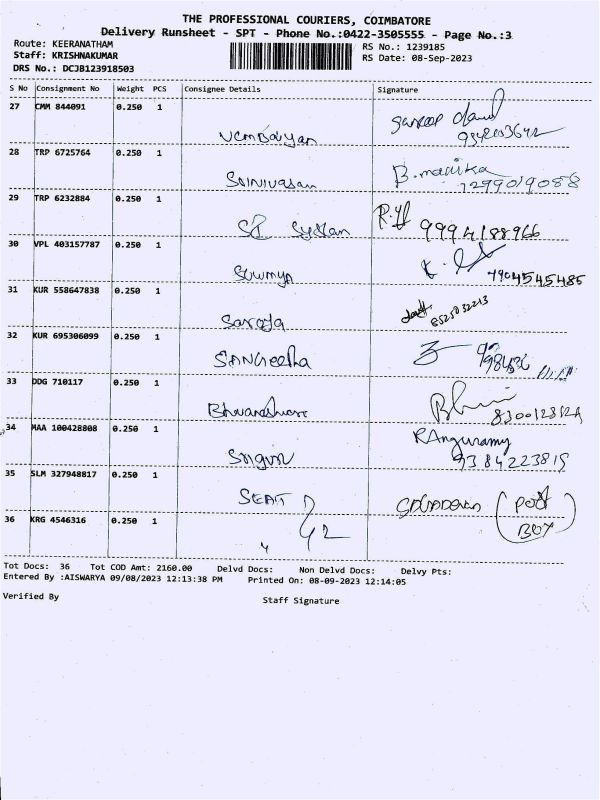 THE PROFESSIONAL COURIERS, COIMBATORE
Delivery Runsheet - SPT - Phone No.:0422-3505555 - Page No.:3
Route: KEERANATHAM
RS No.: 1239185
Staff: KRISHNAKUMAR
RS Date: 08-Sep-2023
DRS No.: DCJB123918503
S No Consignment No Weight PCS Consignee Details Signature
27 CMM 844091 0.250 1
28 TRP 6725764 0.250 1
Srinivasan B.
29 TRP 6232884 0.250 1
9994188966
30 VPL 403157787 0.250 1
Sowmya 7904545485
31 KUR 558647838 0.250 1
Saroja 8525032213
32 KUR 695306099 0.250 1
SANGeetha
33 DDG 710117 0.250 1
34 MAA 100428808 0.250 1
9384223815
35 SLM 327948817 0.250 1
SEAT (Post
36 KRG 4546316 0.250 1
BOX)
Tot Docs: 36 Tot COD Amt: 2160.00 Delvd Docs: Non Delvd Docs: Delvy Pts:
Entered By :AISWARYA 09/08/2023 12:13:38 PM Printed On: 08-09-2023 12:14:05
Verified By Staff Signature